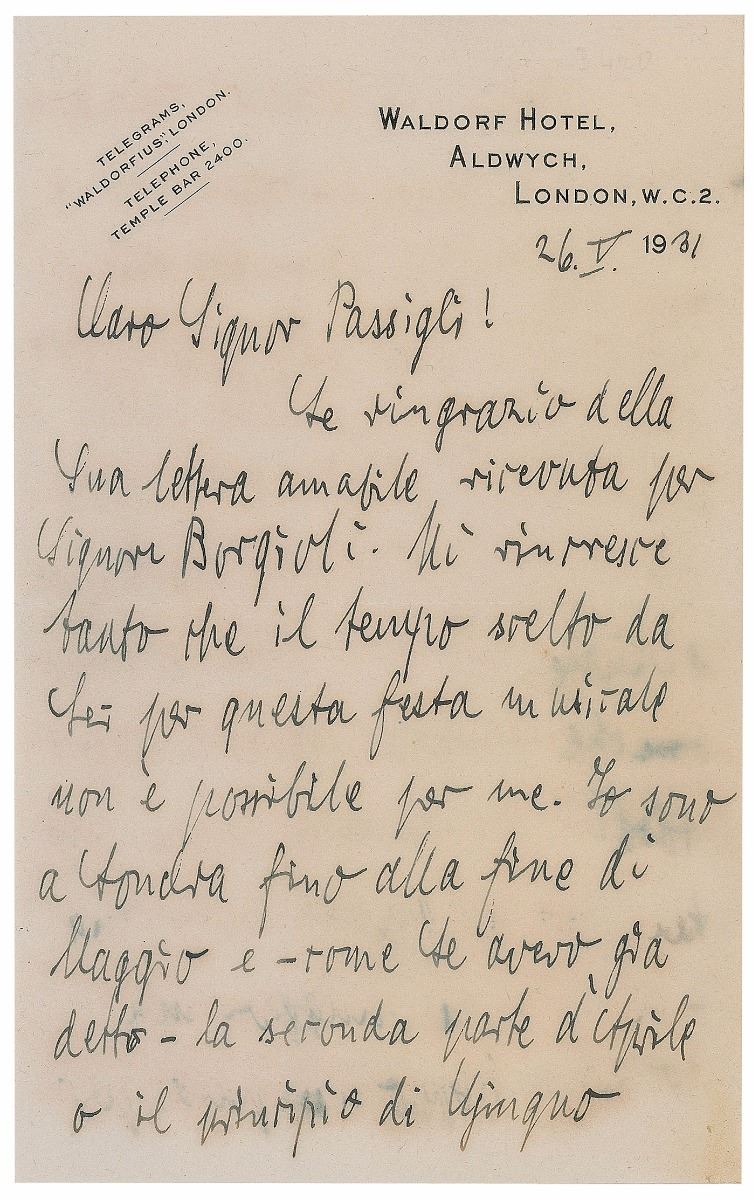 TELEGRAMS,
"WALDORFIUS," LONDON.
TELEPHONE,
TEMPLE BAR 2400.
WALDORF HOTEL,
ALDWYCH,
LONDON, W.C.2.
26. V. 1931
Caro Signor Passigli!
Le ringrazio della
Sua lettera amabile ricevuta per
Signore Borgioli. Mi rincresce
tanto che il tempo scelto da
Lei per questa festa musicale
non è possibile per me. Io sono
a Londra fino alla fine di
Maggio e - come Le avevo già
detto - la seconda parte d'Aprile
o il principio di Giugno